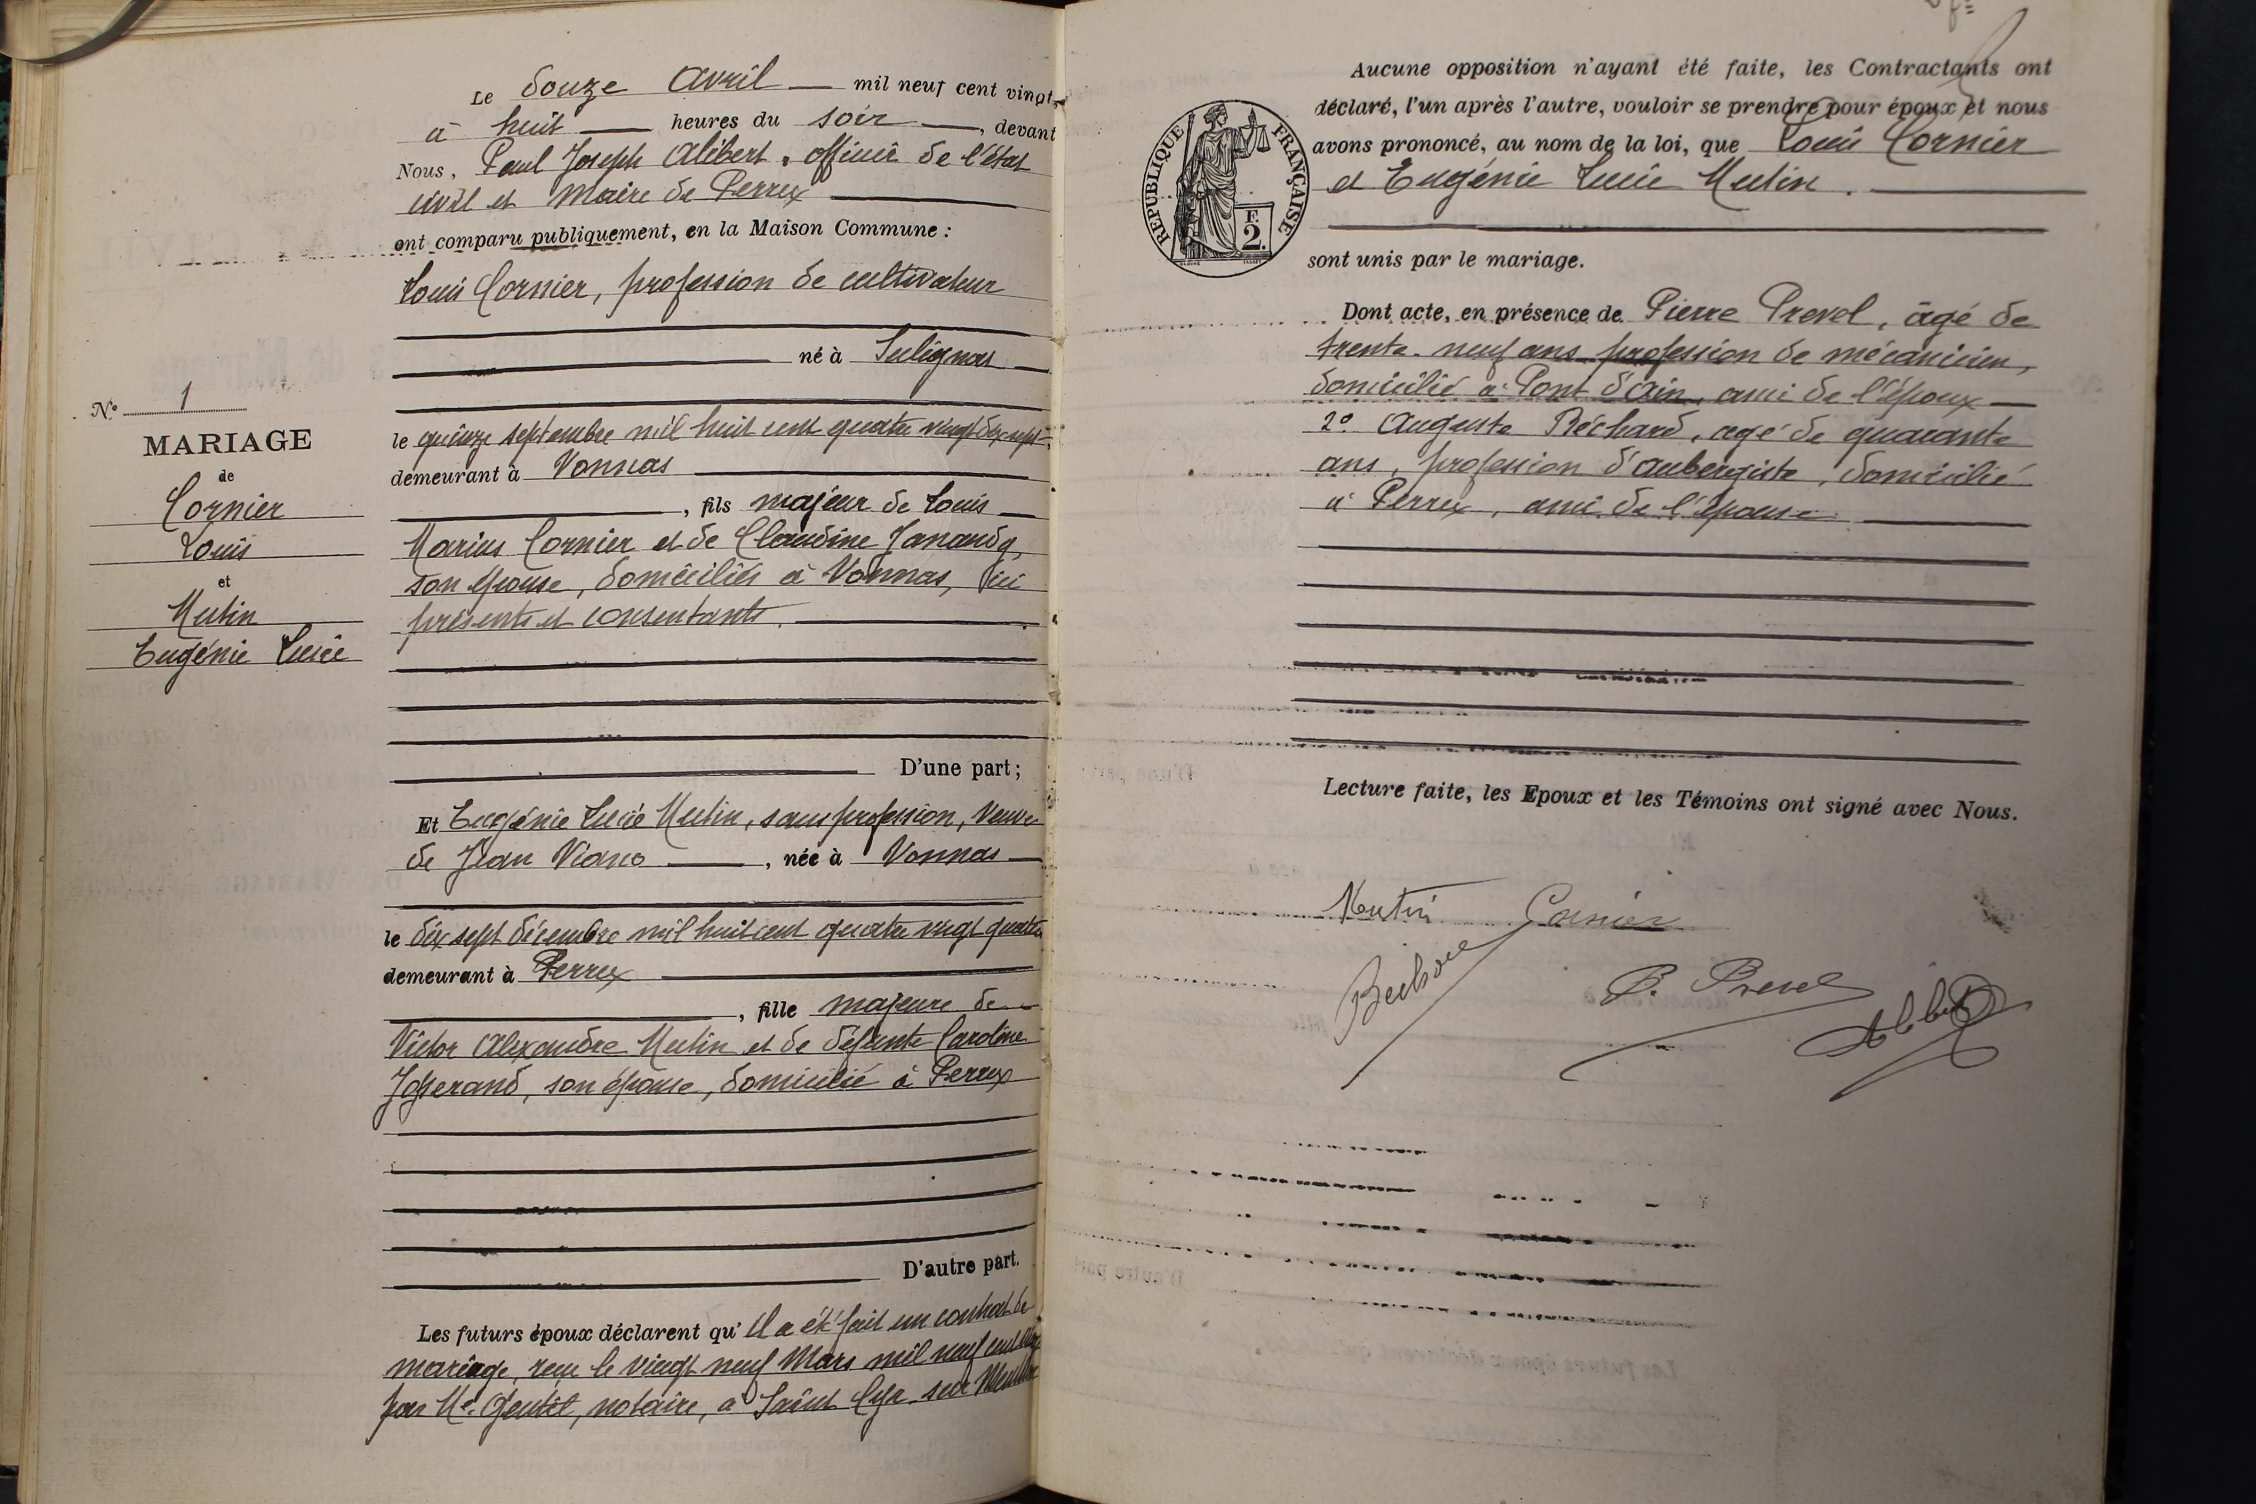 Le douze Avril mil neuf cent vingt
à huit heures du soir, devant
Nous, Paul Joseph Alibert, officier de l'état
civil et Maire de Perrex
ont comparu publiquement, en la Maison Commune :
Louis Cornier, profession de cultivateur
né à Sulignat
N° 1
MARIAGE
de
Cornier
Louis
et
Mutin
Eugénie Lucie
le quinze septembre mil huit cent quatre vingt dix sept,
demeurant à Vonnas
, fils majeur de Louis
Marius Cornier et de Claudine
son épouse, domiciliés à Vonnas, ici
présents et consentants.
D'une part ;
Et Eugénie Lucie Mutin, sans profession, veuve
de Jean Viano, née à Vonnas
le dix sept décembre mil huit cent quatre vingt quatre
demeurant à Perrex
, fille majeure de
Victor Alexandre Mutin et de défunte Caroline
Josserand, son épouse, domicilié à Perrex
D'autre part.
Les futurs époux déclarent qu'il a été fait un contrat de
mariage, reçu le vingt neuf Mars mil neuf cent vingt
par Me Gentil, notaire, à Saint Cyr sur Menthon
Aucune opposition n'ayant été faite, les Contractants ont
déclaré, l'un après l'autre, vouloir se prendre pour époux et nous
avons prononcé, au nom de la loi, que Louis Cornier
et Eugénie Lucie Mutin.
RÉPUBLIQUE FRANÇAISE
F.
2.
sont unis par le mariage.
Dont acte, en présence de Pierre Prevel, âgé de
trente-neuf ans, profession de mécanicien,
domicilié à Pont d'Ain, ami de l'époux
2° Auguste Béchard, agé de quarante
ans, profession d'aubergiste, domicilié
à Perrex, ami de l'épouse.
Lecture faite, les Epoux et les Témoins ont signé avec Nous.
Mutin Cornier
P. Prevel
Alibert